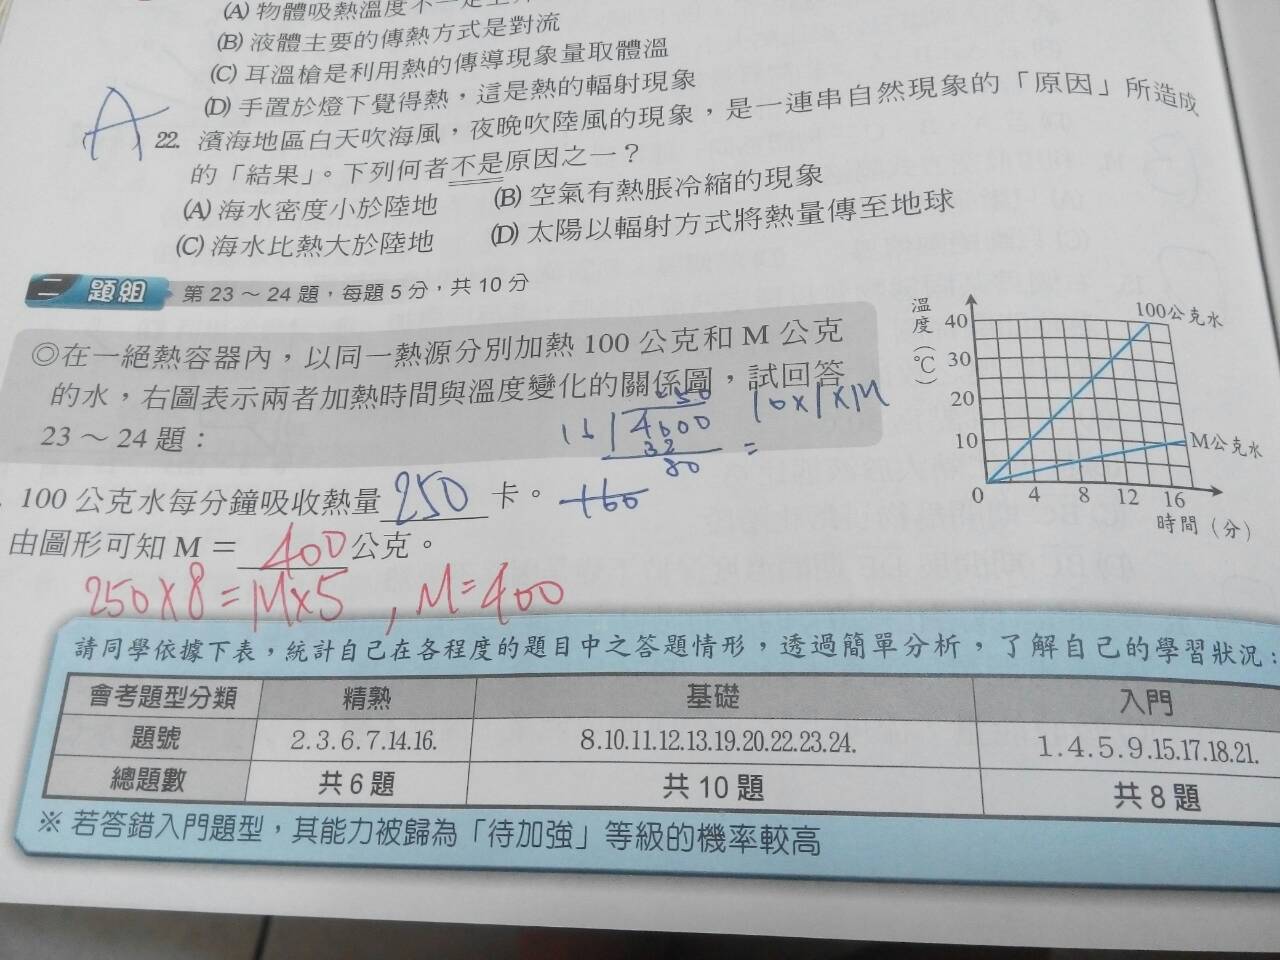 (A) 物體吸熱溫度不一定上升
(B) 液體主要的傳熱方式是對流
(C) 耳溫槍是利用熱的傳導現象量取體溫
(D) 手置於燈下覺得熱，這是熱的輻射現象
A
22. 濱海地區白天吹海風，夜晚吹陸風的現象，是一連串自然現象的「原因」所造成
的「結果」。下列何者不是原因之一？
(A) 海水密度小於陸地 (B) 空氣有熱脹冷縮的現象
(C) 海水比熱大於陸地 (D) 太陽以輻射方式將熱量傳至地球
二 題組 第 23～24 題，每題 5 分，共 10 分
◎在一絕熱容器內，以同一熱源分別加熱 100 公克和 M 公克
的水，右圖表示兩者加熱時間與溫度變化的關係圖，試回答
23～24 題：
溫度(℃)
40
30
20
10
0 4 8 12 16
時間（分）
100公克水
M公克水
250
16 4000
32
80
= 10×1×M
100 公克水每分鐘吸收熱量 250 卡。 160
由圖形可知 M = 400 公克。
250×8=M×5，M=400
請同學依據下表，統計自己在各程度的題目中之答題情形，透過簡單分析，了解自己的學習狀況：
會考題型分類 精熟 基礎 入門
題號 2.3.6.7.14.16. 8.10.11.12.13.19.20.22.23.24. 1.4.5.9.15.17.18.21.
總題數 共 6 題 共 10 題 共 8 題
※ 若答錯入門題型，其能力被歸為「待加強」等級的機率較高